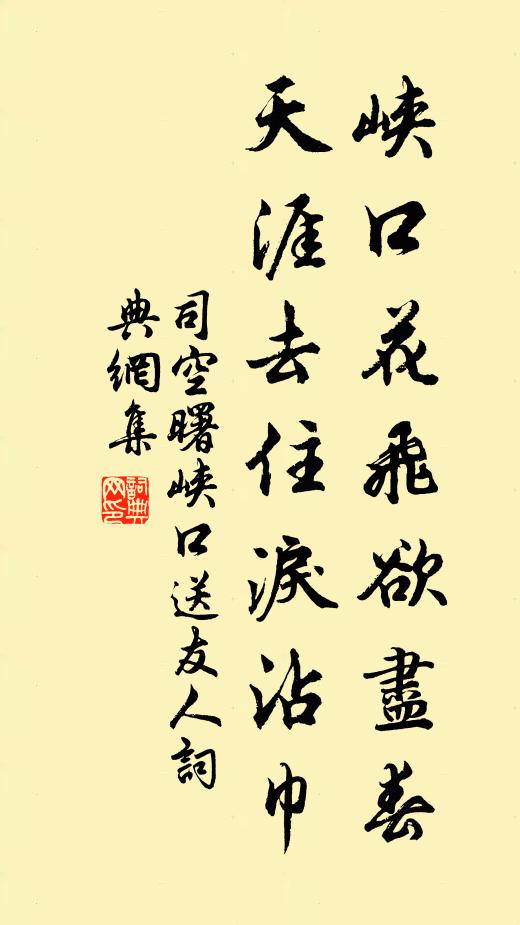 峽口花飛欲盡春
天涯去住淚沾巾
司空曙峽口送友人詞
典網集
詞典
网印